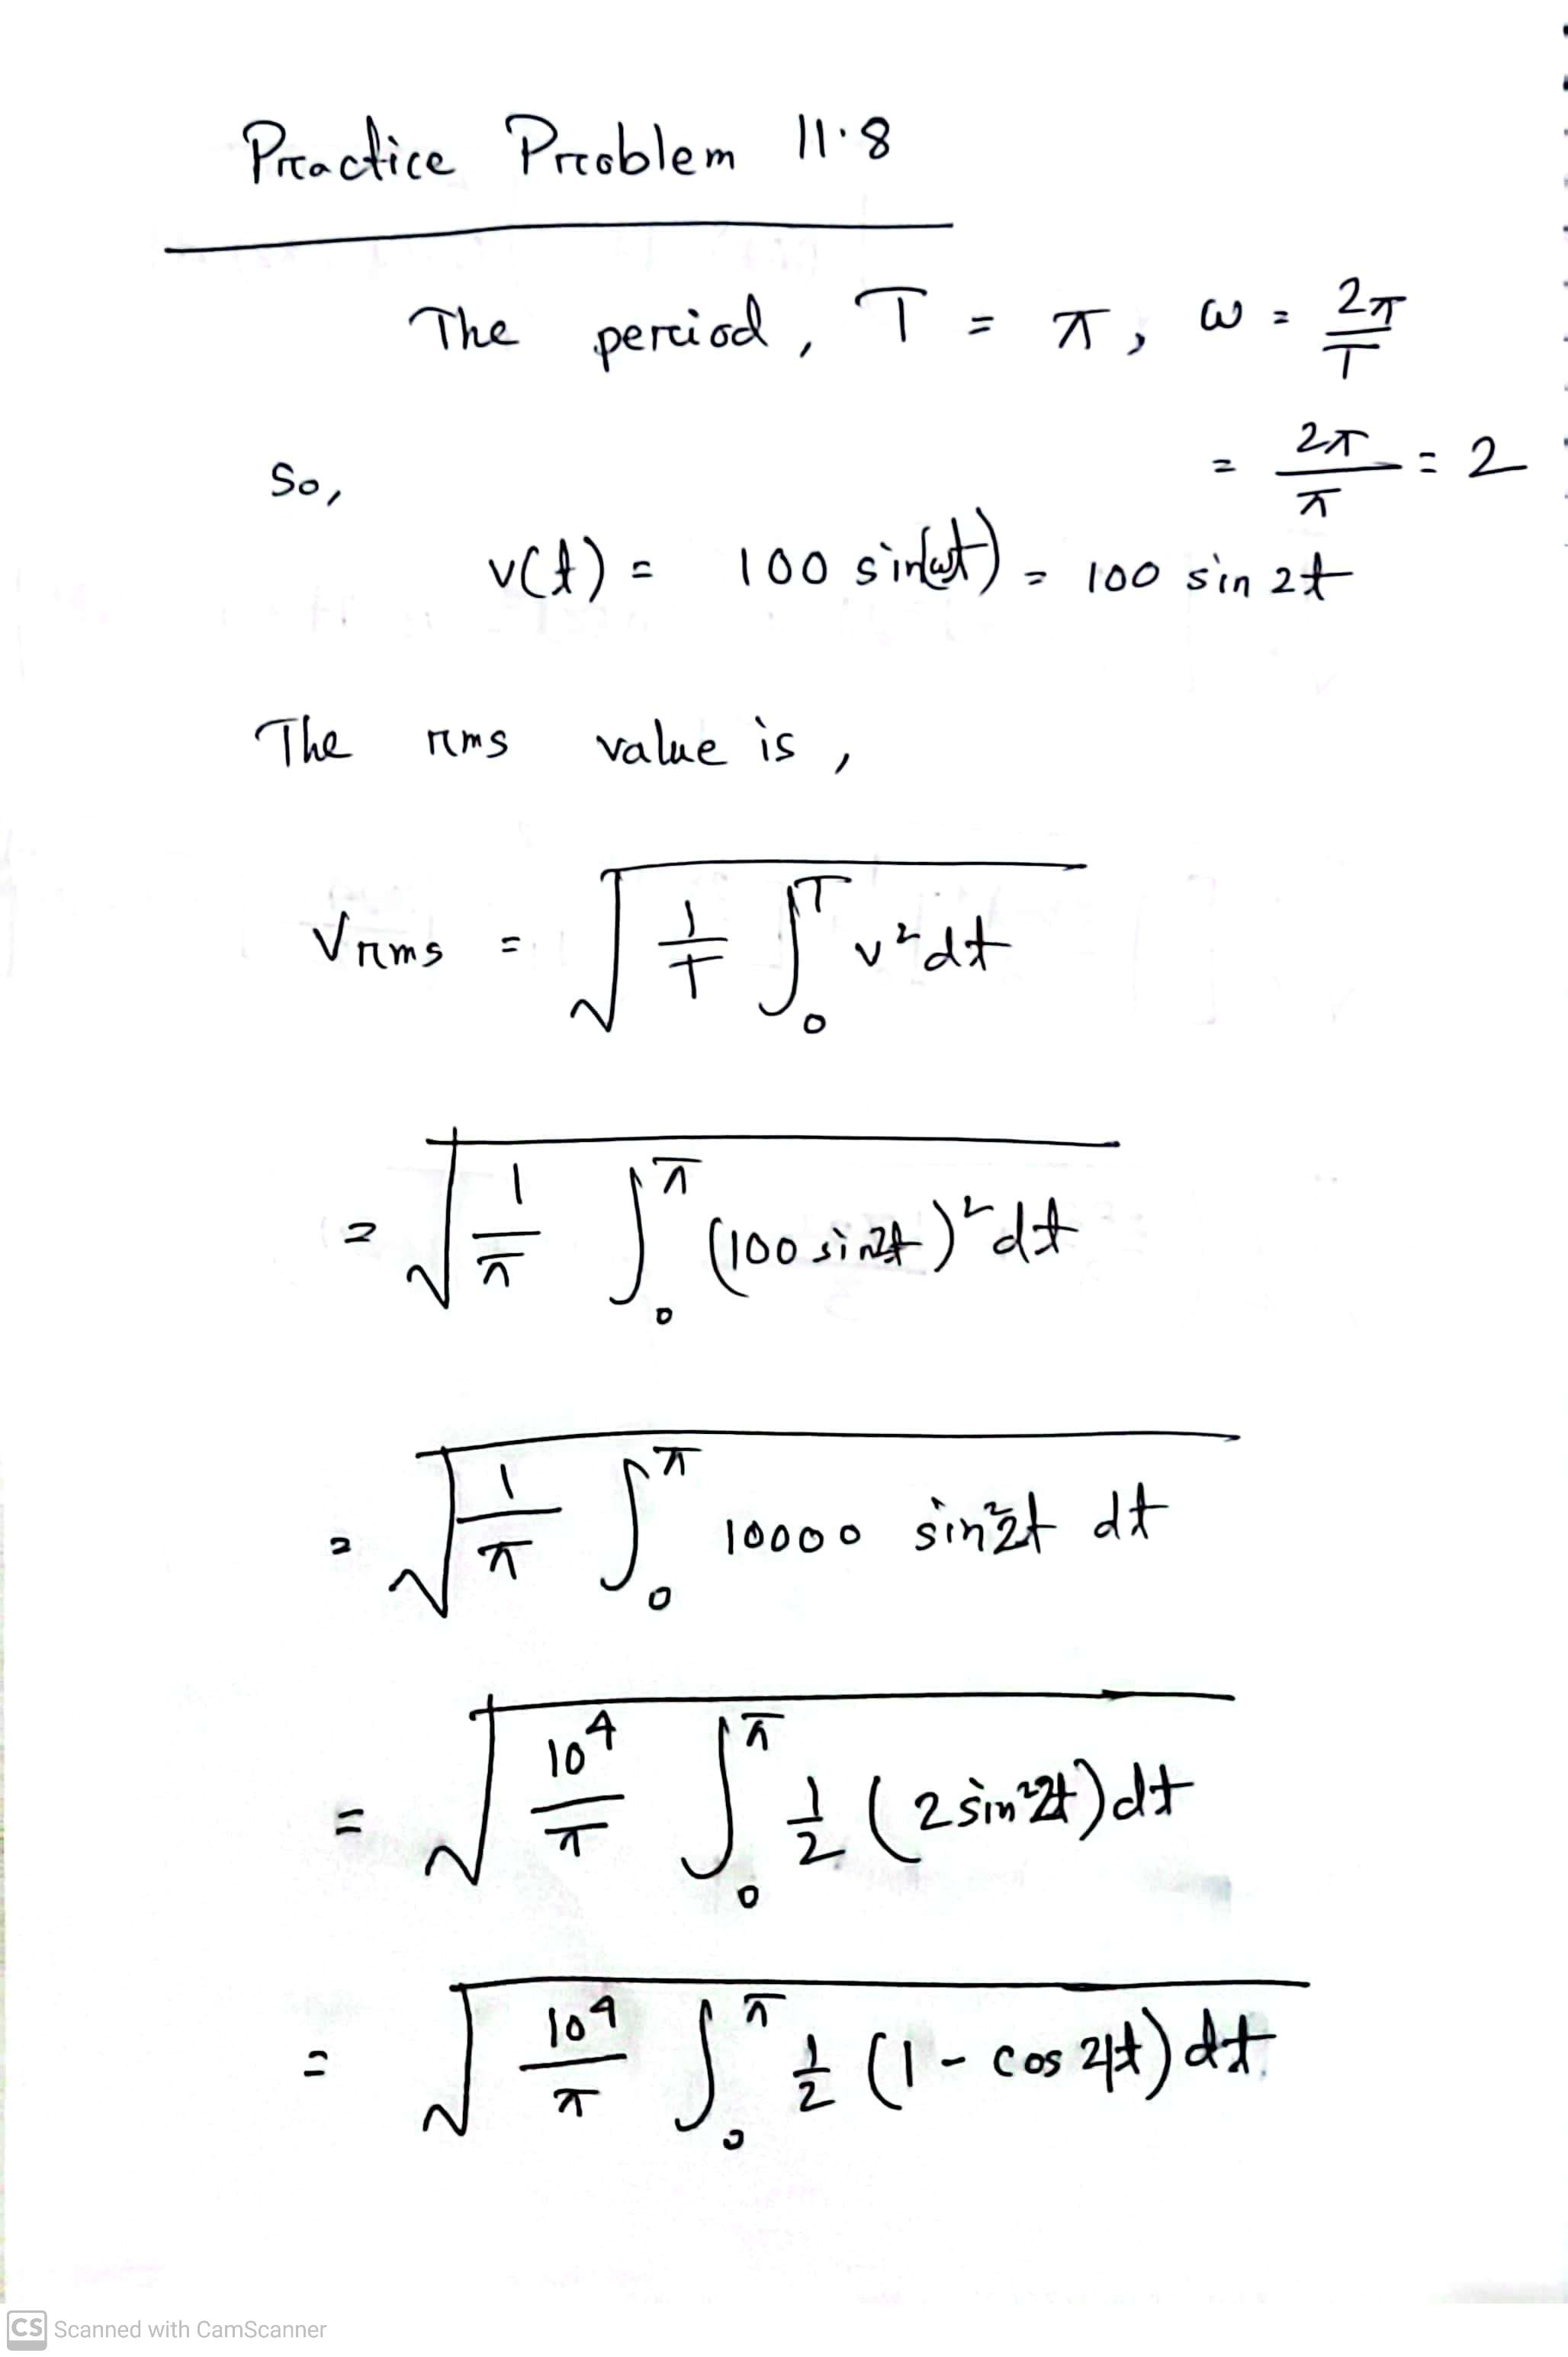 Practice Problem 11.8
The period, T = π, ω = 2π/T
= 2π/π = 2
So,
v(t) = 100 sin(ωt) = 100 sin 2t
The rms value is,
Vrms = √(1/T ∫₀ᵀ v² dt)
= √(1/π ∫₀^π (100 sin2t)² dt)
= √(1/π ∫₀^π 10000 sin²2t dt)
= √(10⁴/π ∫₀^π 1/2 (2 sin²2t) dt)
= √(10⁴/π ∫₀^π 1/2 (1 - cos 4t) dt)
CS Scanned with CamScanner